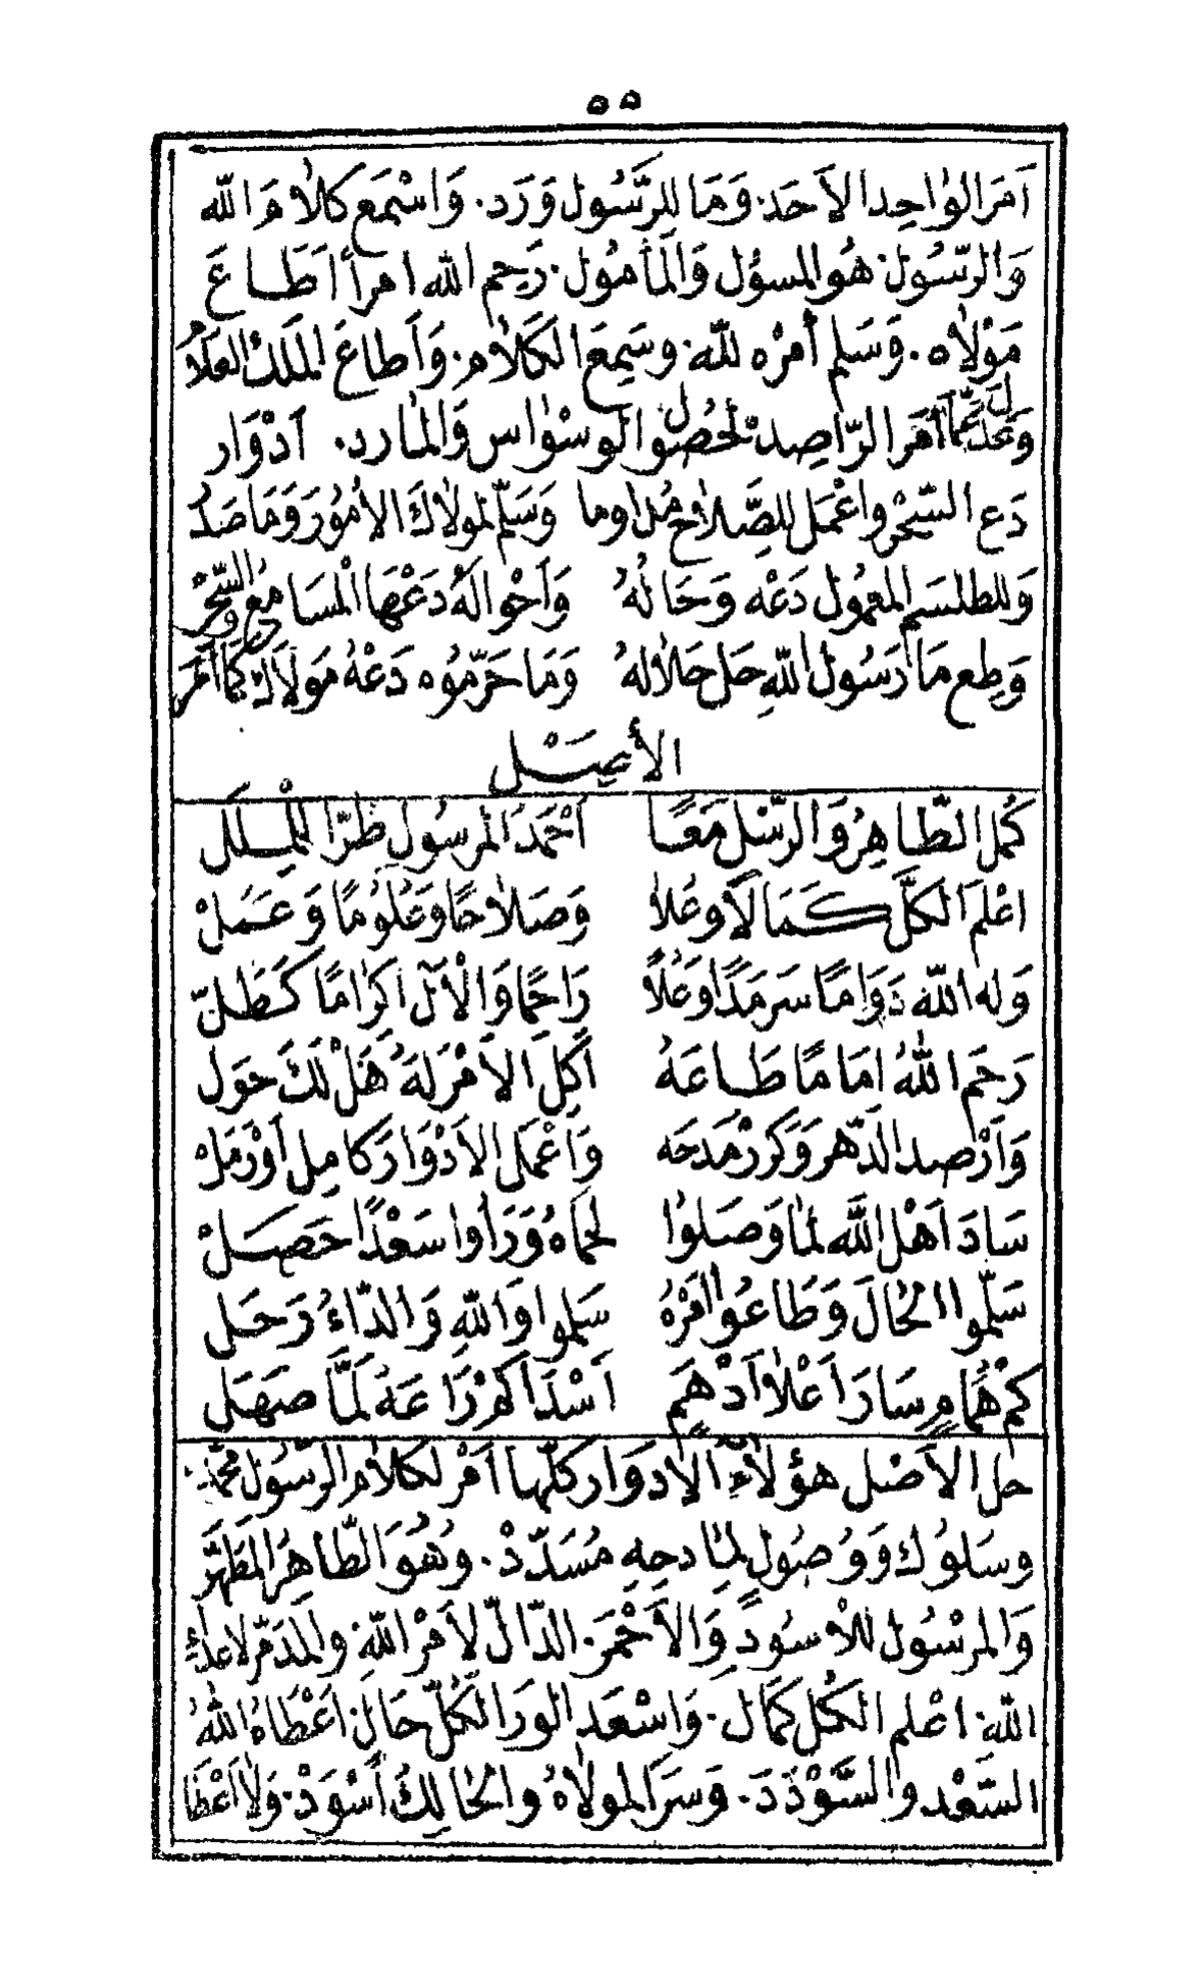 ٥٥
اَمَرَ الوٰاحِد الاَحَد. وَمَا لِلرَّسُول وَرَد. وَاسْمَع كَلاٰمَ اللّه
وَالرّسُول. هُو المسؤل وَالمَأمُول. رَحِم اللّه امرأ اَطَاعَ
مَوْلاٰه. وَسَلم أمْرُه للّه. وسَمِعَ الكَلاٰم. وَأطاعَ المَلَك العَلاَّ
وَعَدَل عَمّا اَمَر الرّاصِد لحُصُول الوسْوٰاس وَالمٰارد. اَدْوَار
دَع السّحْر واعْمَل لِلصَّلاٰح مُداوما وَسَلّم لمولاٰكَ الاُمُورَ وَمَا صَدَرْ
وَللطلسَم المعمُول دَعْه وَحَالُهُ وَاَحْوالهُ دَعْهَا المسَامِع وَالسِّحْرْ
وَطِع مَا رَسُول اللّهِ حَل حَلاٰلهُ وَمَا حَرّمُوه دَعْهُ مَولاَك كَمَا اَمَرْ
الأصْل
كُمل الطّاهِرُ وَالرّسْل مَعًا اَحْمَدُ المرسُول طُرّا لِلْمِلَل
اعْلَم الكلّ كَمَالاً وعَلاٰ وَصَلاٰحًا وَعُلُومًا وَعَمَلْ
وَله اللّه دَوَامًا سَرمَدًا وَعُلاً رَاحِمًا وَالْآل اكرٰامًا كَطَلّ
رَحَم اللّهُ امَامًا طَاعَهُ اكِلَ الاَمْرَ لهُ هَلْ لَكَ حَوَل
وَارْصد الدّهر وَكررْ مَدحَه وَاعْمَل الاَدْوَار كامِل اَوْ رَمَلْ
سَادَ اَهْل اللّه لمٰا وَصَلوٰا لحمَاهُ وَرَاوا سَعْدًا حَصَلْ
سَلّموا الحَالَ وَطَاعُوا اَمْرَهُ سَلموا وَاللّهِ وَالدّاءُ رَحَل
كمْ هُمَامٍ سَارَ اَعْلاٰ اَدْهَمٍ اَسْدَ اكمْ رَاعَهُ لَمَّا صَهَل
حٰل الاَصْل هؤلاٰءِ الاَدوَار كلّها اَمْر لكلاٰم الرّسُول محمّد
وسَلوُك وَوُصُول لمٰادحِهِ مُسَدّدْ. وهُوَ الطّاهِرُ المطَهَّر
وَالمرْسُول للاْسوَدِ وَالاَحْمَر. الدّالّ لاَمْر اللّهِ. والمدَمّر لاعداءِ
اللّه. اعْلم الكل كَمَال. وَاسْعَد الورَا لكُلّ حَال. اعْطَاهُ اللّهُ
السّعْد والسَّوْدَدَ. وَسَرَا لمولاٰهُ والحَالِكُ اَسْوَدْ. وَلاٰ اَعْطَا